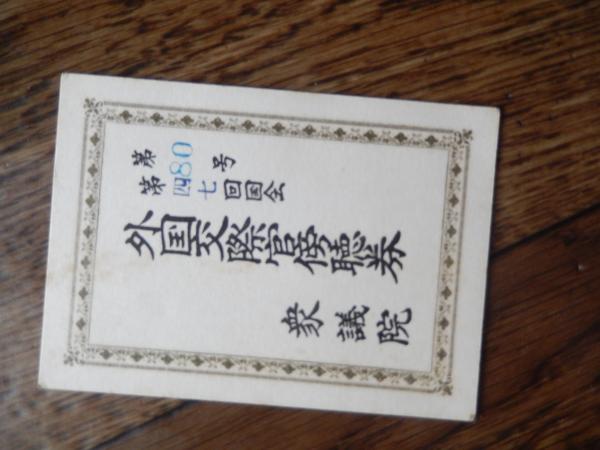 第80号
第四七回国会
外国交際官傍聴券
衆議院